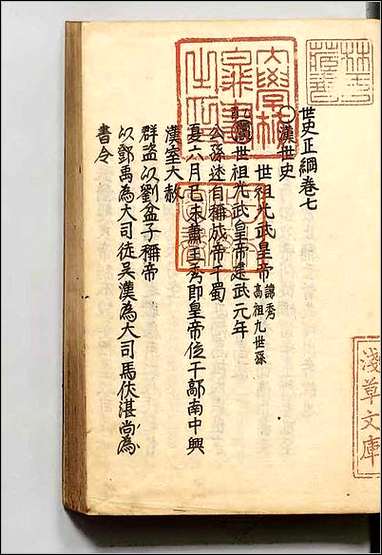 世史正綱卷七
○漢世史
世祖光武皇帝諱秀高祖九世孫
漢世祖光武皇帝建武元年
公孫述自稱成帝于蜀
夏六月己未蕭王秀即皇帝位于鄗南中興
漢室大赦
群盜以劉盆子稱帝
以鄧禹為大司徒吳漢為大司馬伏湛尚為
書令
林氏藏書
淺草文庫